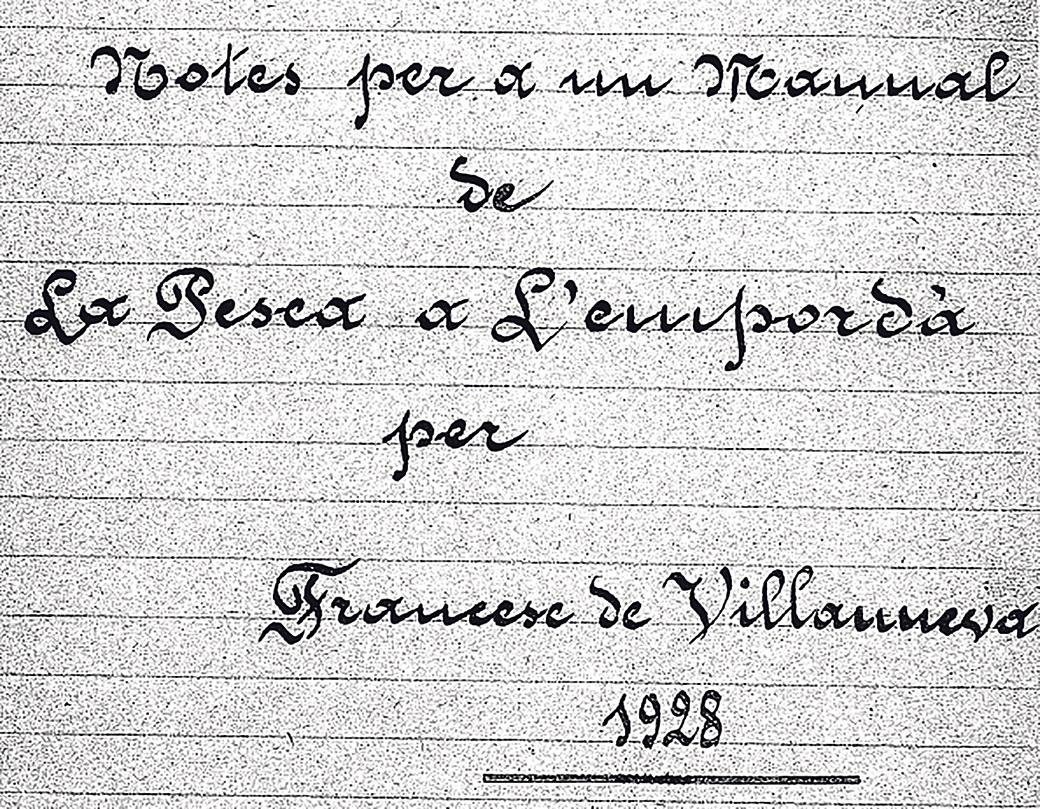 Notes per a un Manual
de
La Pesca a L'empordà
per
Francesc de Villanueva
1928